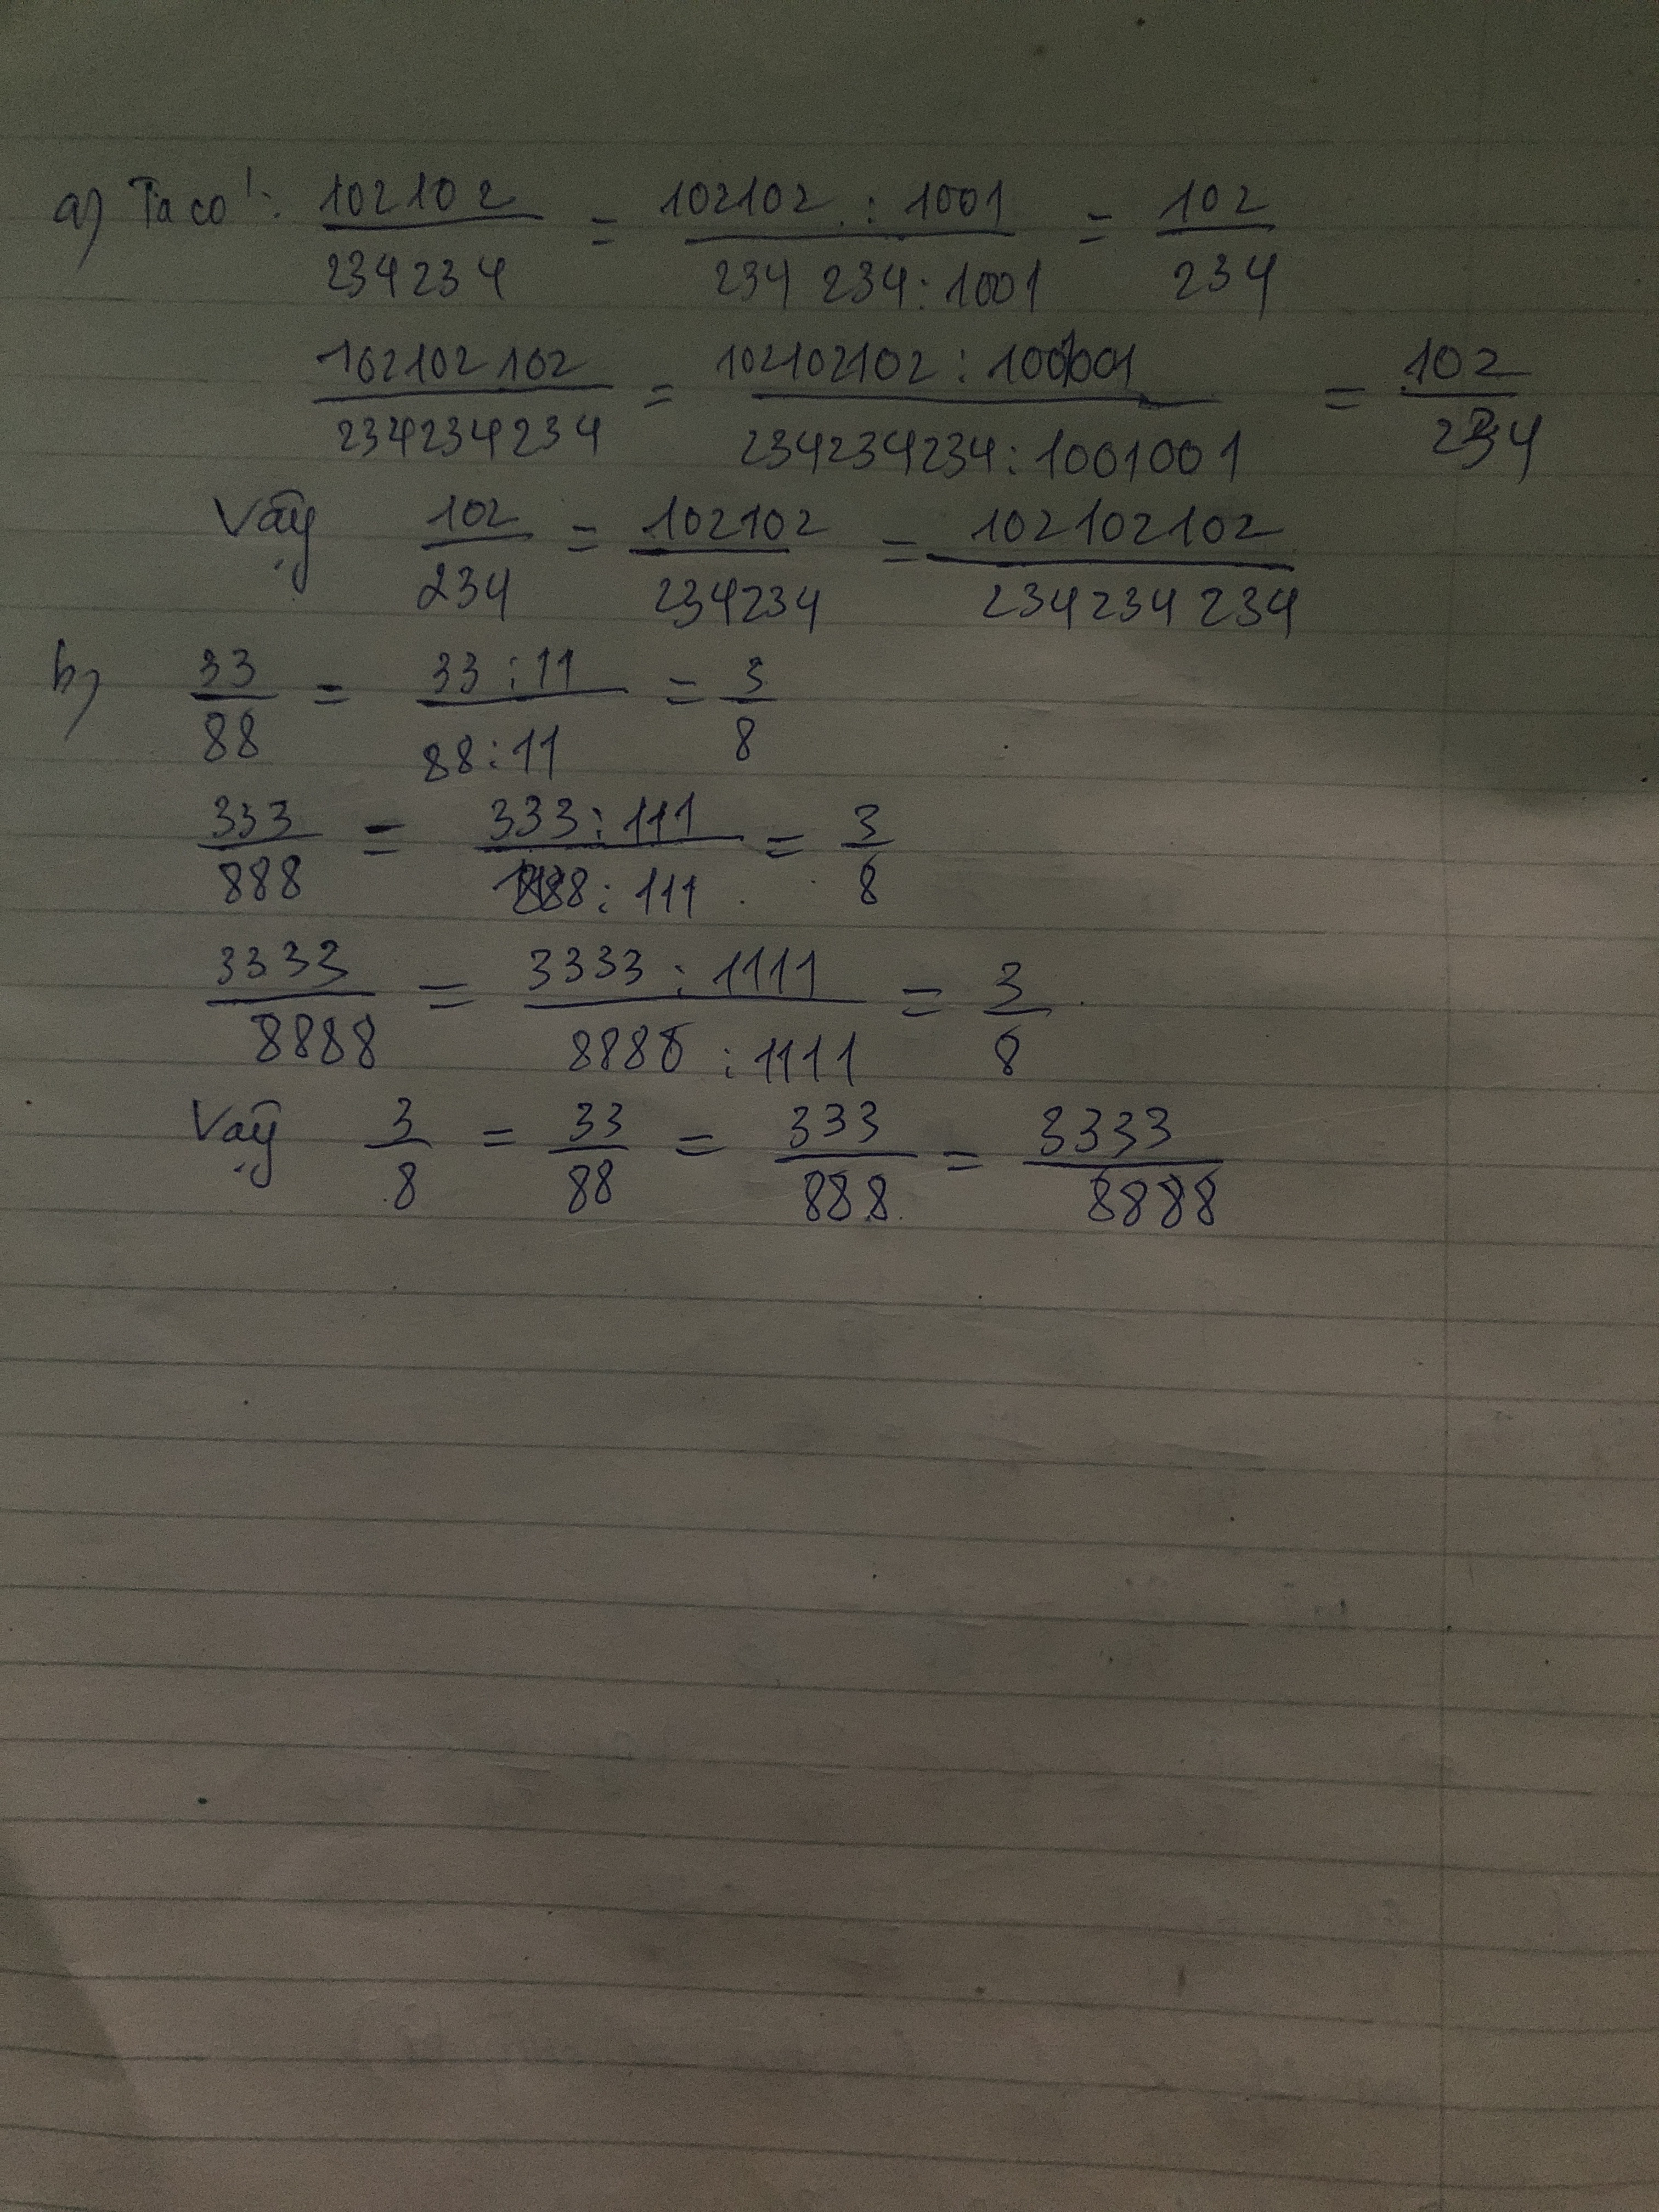 a) Ta có: 102102/234234 = 102102 : 1001/234 234 : 1001 = 102/234
102102102/234234234 = 102102102 : 1001001/234234234 : 1001001 = 102/234
Vậy 102/234 = 102102/234234 = 102102102/234234234
b) 33/88 = 33 : 11/88 : 11 = 3/8
333/888 = 333 : 111/888 : 111 = 3/8
3333/8888 = 3333 : 1111/8888 : 1111 = 3/8
Vậy 3/8 = 33/88 = 333/888 = 3333/8888